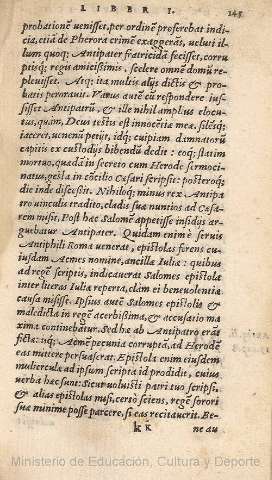 LIBER I. 245
probationē venisset, per ordinē proferebat indi
cia, etiā de Pherora crimē exaggerās, veluti il-
lum quoq; Antipater fratricidā fecisset, corru
ptisq; regis amicissimis, scelere omnē domū re-
plevisset. Atq; ita multis alijs dictis & pro-
batis perorauit. Varus autē cū respondere ius-
sisset Antipatrū, & ille nihil amplius elocu-
tus, quam, Deus testis est innocētiæ meæ, silēsq;
iaceret, uenenū petijt, idq; cuipiam damnatorū
capitis ex custodijs bibendū dedit: eoq; statim
mortuo, quædā in secreto cum Herode sermoci-
natus, gesta in cōcilio Cæsari scripsit: posteroq;
die inde discessit. Nihiloq; minus rex Antipa
tro vinculis tradito, cladis suæ nuntios ad Cæsa-
rem misit. Post hæc Salomē appetisse insidijs ar-
guebatur Antipater. Quidam enim è servis
Antiphili Roma uenerat, epistolas ferens cu-
iusdam Acmes nomine, ancillæ Iuliæ: quibus
ad regē scriptis, indicauerat Salomes epistolas
inter literas Iuliæ reperta, clàm ei beneuolentiæ
causa misisse. Ipsius autē Salomes epistola &
maledicta in regē acerbissima, & accusatio ma
xima continebatur. Sed hæ ab Antipatro erāt
fictæ: nāq; Acmē pecunia corruptā, ad Herodē
eas mittere persuaserat. Epistola enim eiusdem
mulierculæ ad ipsum scripta id prodidit, cuius
verba hæc sunt: Sicut voluisti patri tuo scripsi,
& alias epistolas misi, certò sciens, regē sorori
suæ minime posse parcere, si eas recitauerit. Be-
kk ne au
Ministerio de Educación, Cultura y Deporte